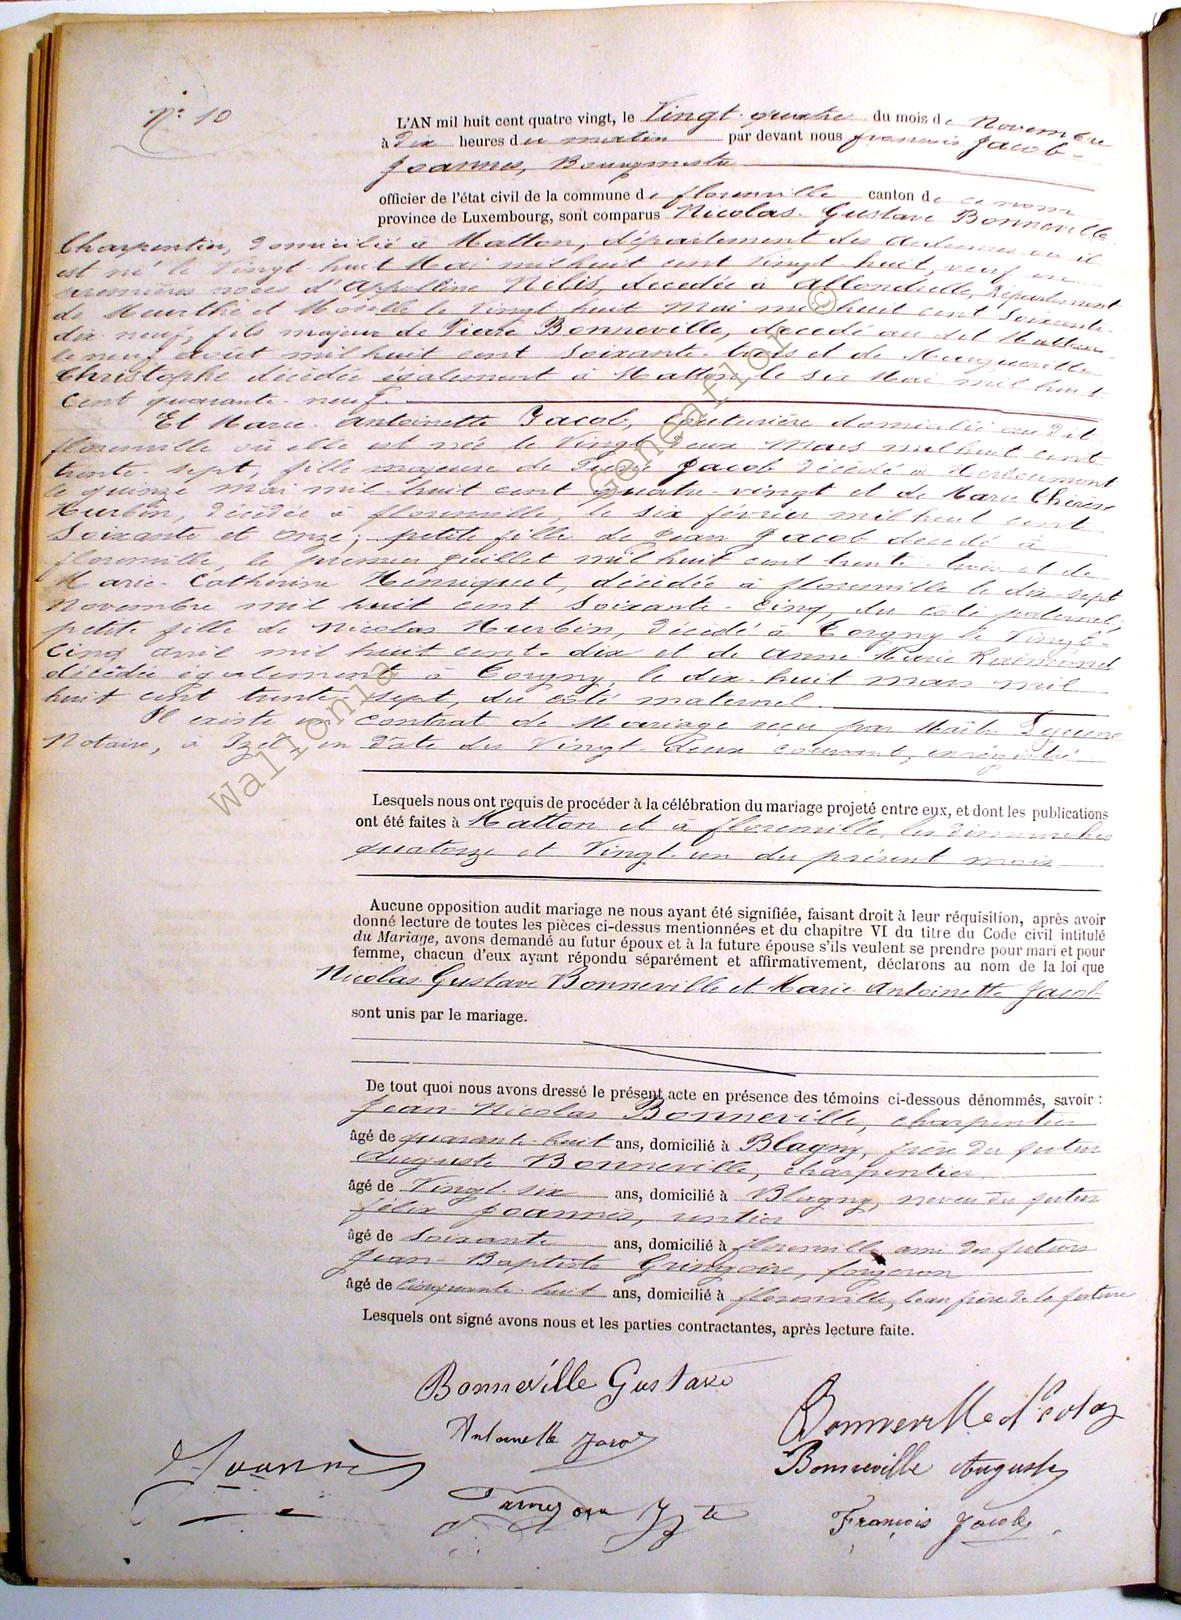 N° 10
L'AN mil huit cent quatre vingt, le Vingt quatre du mois de Novembre
à dix heures du matin par devant nous françois Jacob
Joannes, Bourgmestre
officier de l'état civil de la commune de florenville canton de ce nom
province de Luxembourg, sont comparus Nicolas Gustave Bonneville
Charpentier, domicilié à Matton, département des Ardennes où il
est né le Vingt huit Mai mil huit cent Vingt huit, veuf en
premières noces d'Appolline Nélis, décédée à Allondrelle, Département
de Meurthe et Moselle le Vingt huit Mai mil huit cent Soixante
dix neuf, fils majeur de Pierre Bonneville, décedé au dit Matton
le neuf août mil huit cent Soixante trois et de Marguerite
Christophe décédée également à Matton le Six Mai mil huit
Cent quarante neuf.
Et Marie Antoinette Jacob, Couturière domiciliée au dit
florenville où elle est née le Vingt deux Mars mil huit cent
trente sept, fille majeure de Jacob décédé à Herbeumont
le quinze mai mil huit cent quatre vingt et de Marie Thérèse
Hurbin, décédée à florenville, le six février mil huit cent
Soixante et onze; petite fille de Jean Jacob decedé à
florenville, le premier juillet mil huit cent trente trois et de
Marie Catherine Henriquet, décédée à florenville le dix sept
Novembre mil huit cent Soixante cinq, du côté paternel;
petite fille de Nicolas Hurbin, décédé à Torgny le Vingt
Cinq avril mil huit cent dix et de Anne Marie Raimond
décédée également à Torgny, le dix huit mars mil
huit cent trente sept, du côté maternel.
Il existe un Contrat de Mariage reçu par Maître Lejeune
Notaire, à Izel en date du Vingt deux courant, enregistré
Lesquels nous ont requis de procéder à la célébration du mariage projeté entre eux, et dont les publications
ont été faites à Matton et à florenville, les dimanches
quatorze et Vingt un du présent mois
Aucune opposition audit mariage ne nous ayant été signifiée, faisant droit à leur réquisition, après avoir
donné lecture de toutes les pièces ci-dessus mentionnées et du chapitre VI du titre du Code civil intitulé
du Mariage, avons demandé au futur époux et à la future épouse s'ils veulent se prendre pour mari et pour
femme, chacun d'eux ayant répondu séparément et affirmativement, déclarons au nom de la loi que
Nicolas Gustave Bonneville et Marie Antoinette Jacob
sont unis par le mariage.
De tout quoi nous avons dressé le présent acte en présence des témoins ci-dessous dénommés, savoir :
Jean Nicolas Bonneville, charpentier
âgé de quarante huit ans, domicilié à Blagny, frère du futur
Auguste Bonneville, charpentier
âgé de Vingt six ans, domicilié à Blagny, neveu du futur
félix Joannes, rentier
âgé de Soixante ans, domicilié à florenville ami des futurs
Jean Baptiste Gringoire, forgeron
âgé de cinquante huit ans, domicilié à florenville, beau frère de la future
Lesquels ont signé avons nous et les parties contractantes, après lecture faite.
Bonneville Gustave
Bonneville Nicolas
Antoinette Jacob
Bonneville Auguste
Joannes
François Jacob
Wallonia Geneaflor ©